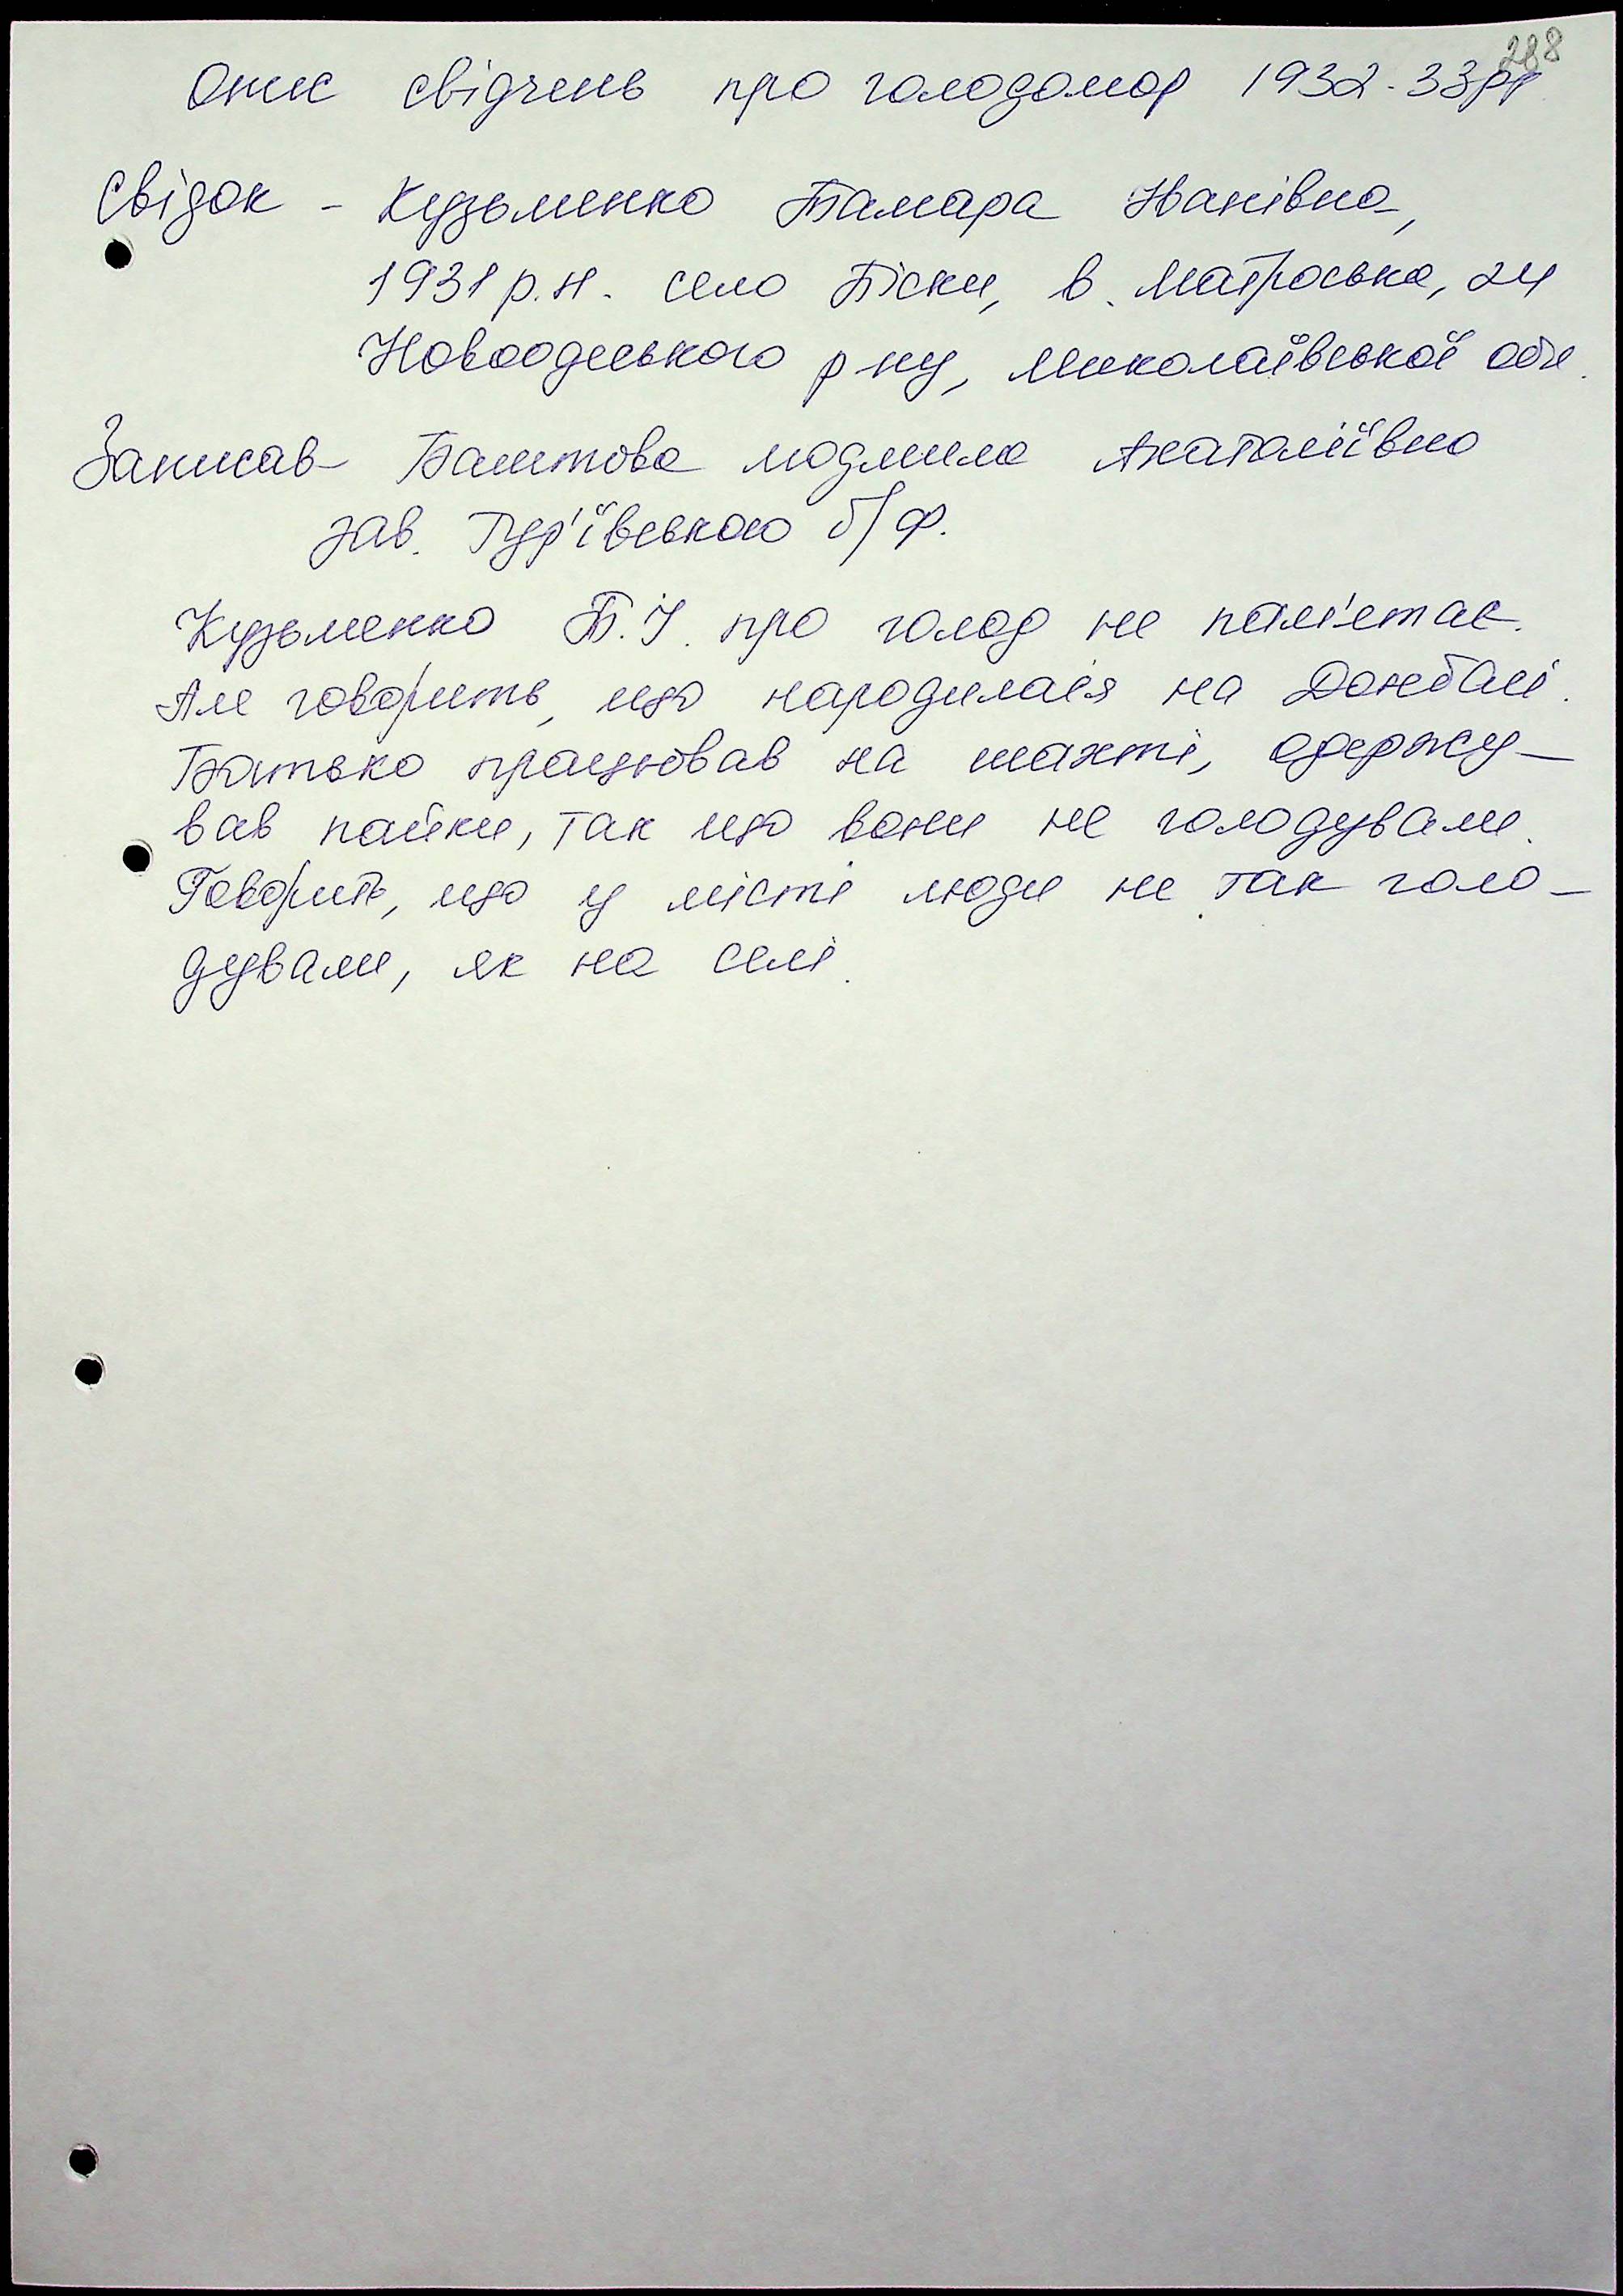 288
Опис свідчень про голодомор 1932-33рр
Свідок - Кузьменко Тамара Іванівна,
1931 р.н. село Піски, в. Матроська, 24
Новоодеського р-ну, Миколаївської обл.
Записав - Баштова Людмила Анатоліївна
зав. Гур'ївською б/ф.
Кузьменко Т.І. про голод не пам'ятає.
Але говорить, що народилася на Донбасі.
Батько працював на шахті, одержу-
вав пайки, так що вони не голодували.
Говорить, що у місті люди не так голо-
дували, як на селі.